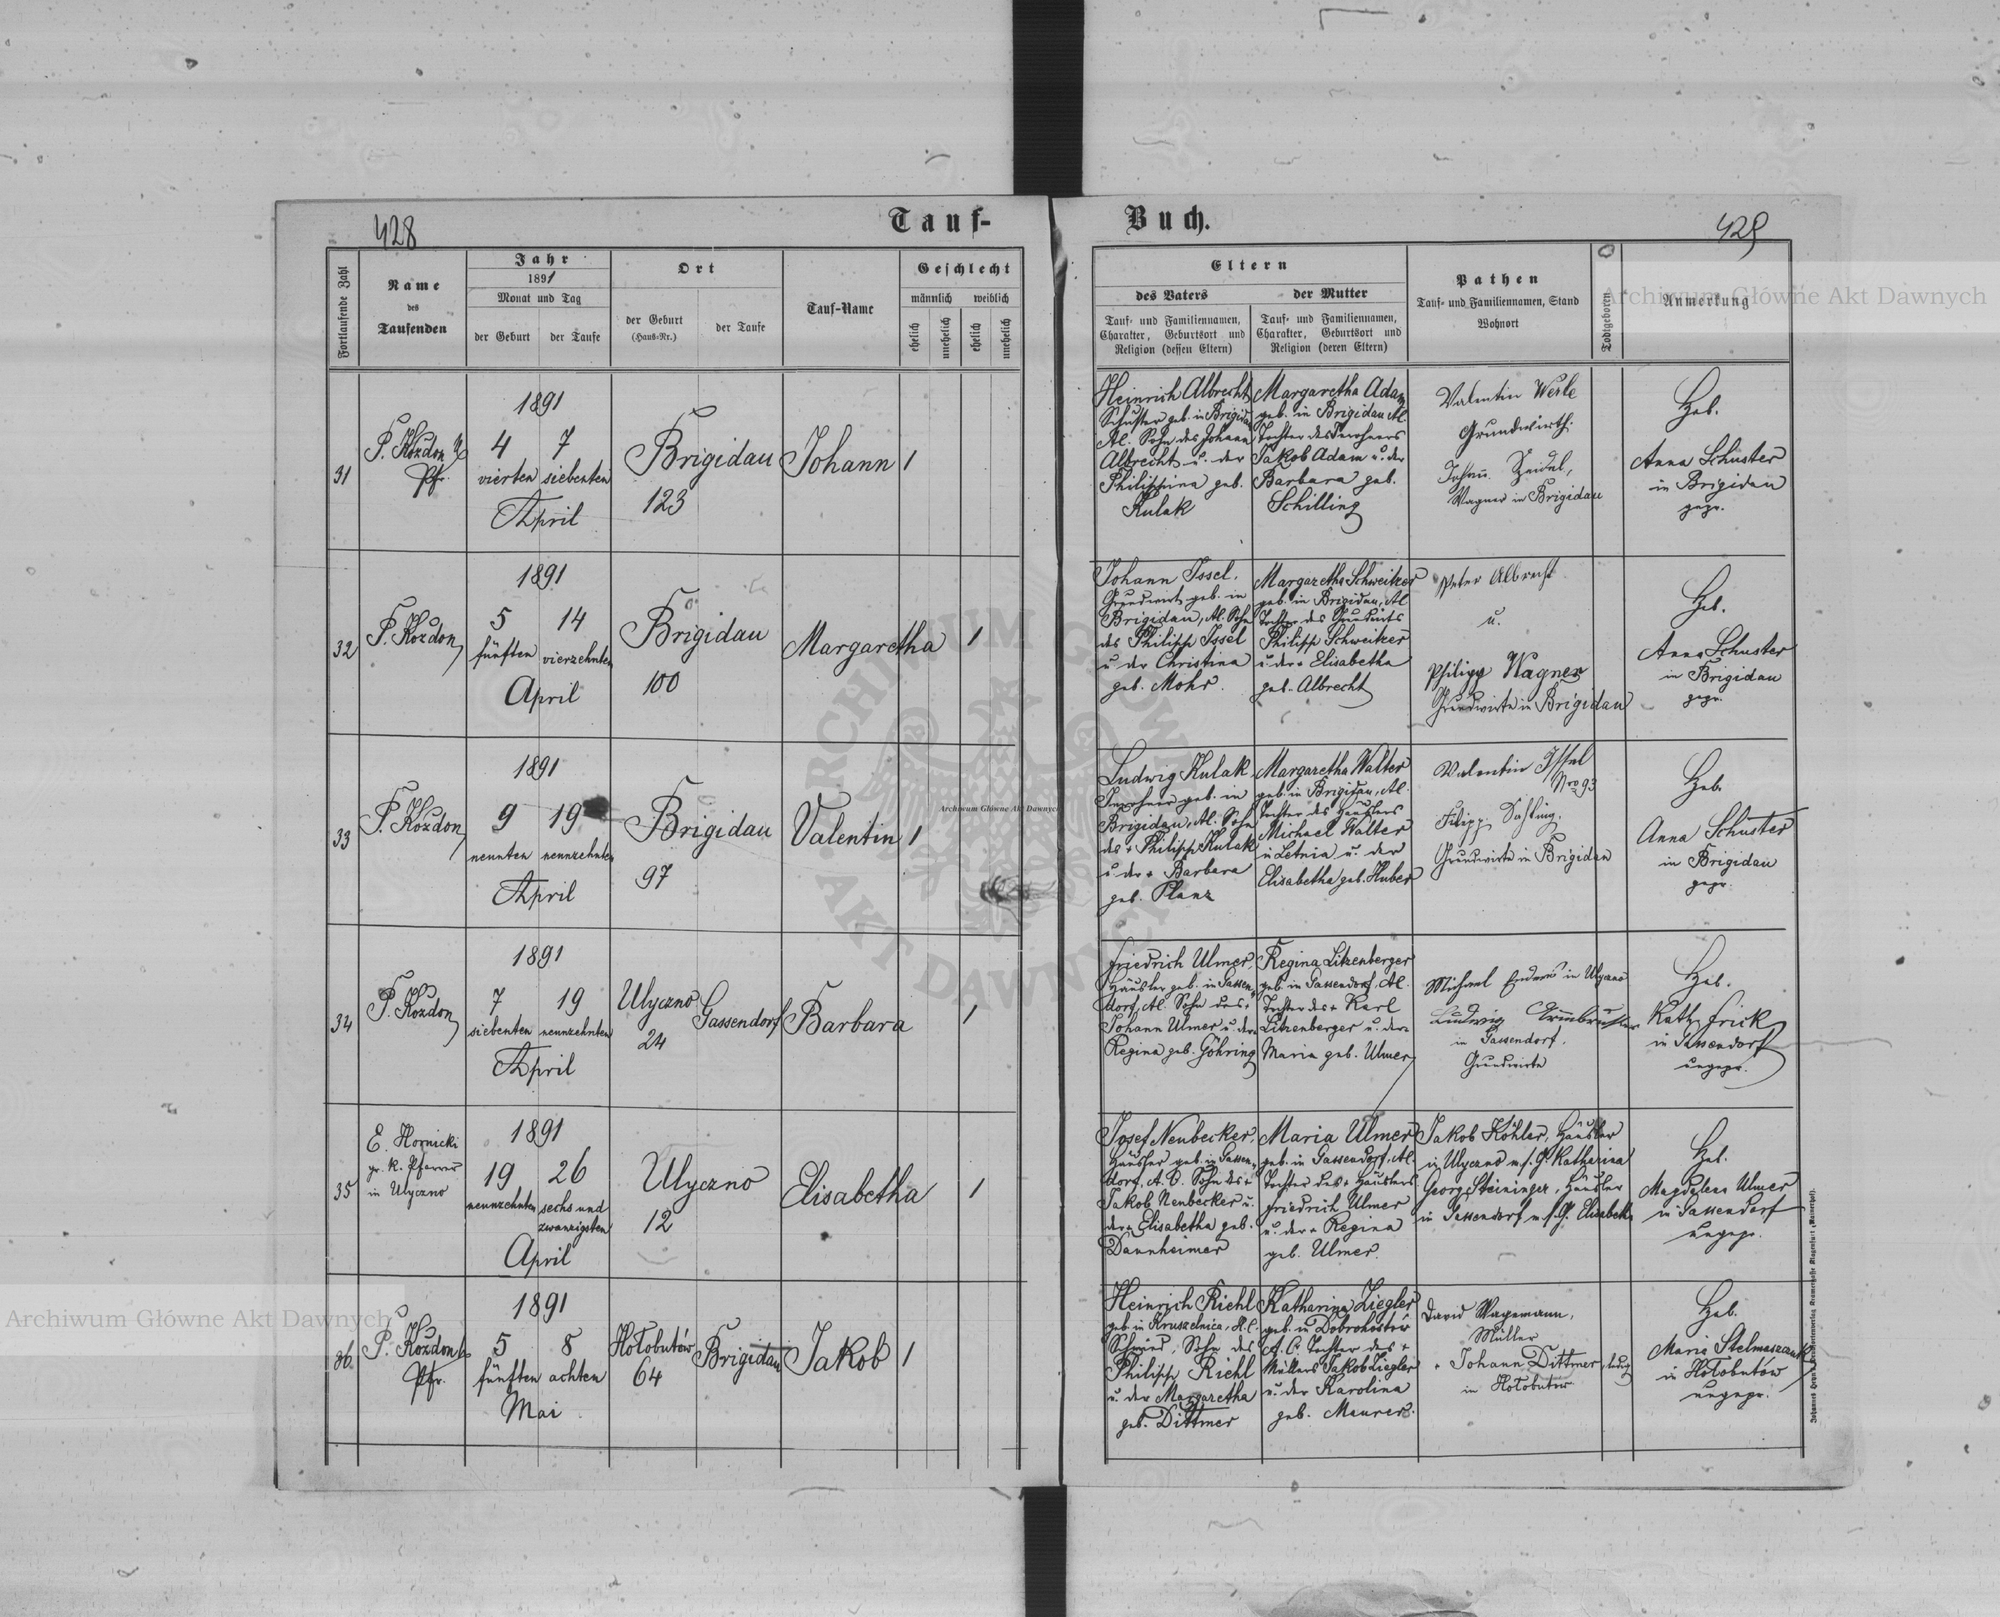 428
Tauf-
Buch.
429
Fortlaufende Zahl
Name
des
Taufenden
Jahr
1891
Monat und Tag
der Geburt
der Taufe
Ort
der Geburt
(Haus-Nr.)
der Taufe
Tauf-Name
Geschlecht
männlich
weiblich
ehelich
unehelich
ehelich
unehelich
Eltern
des Vaters
der Mutter
Tauf- und Familiennamen,
Charakter, Geburtsort und
Religion (dessen Eltern)
Tauf- und Familiennamen,
Charakter, Geburtsort und
Religion (deren Eltern)
Pathen
Tauf- und Familiennamen, Stand
Wohnort
Todtgeboren
Anmerkung
31
P. Kozdon
Pfr.
1891
4 7
vierten siebenten
April
Brigidau
123
Johann
1
Heinrich Albrecht
Schuster geb. in Brigidau
Al. Sohn des Johann
Albrecht u. der
Philippina geb.
Kulak
Margaretha Adam
geb. in Brigidau Al.
Tochter des Inwohners
Jakob Adam u. der
Barbara geb.
Schilling
Valentin Werle
Grundwirth.
Johann Zeidel,
Wagner in Brigidau
Heb.
Anna Schuster
in Brigidau
gepr.
32
P. Kozdon
1891
5 14
fünften vierzehnten
April
Brigidau
100
Margaretha
1
Johann Issel,
Grundwirt geb. in
Brigidau, Al. Sohn
des Philipp Issel
u der Christina
geb. Mohr.
Margaretha Schweitzer
geb. in Brigidau, Al
Tochter des Grundwirts
Philipp Schweitzer
u der + Elisabetha
geb. Albrecht
Peter Albrecht
u.
Philipp Wagner
Grundwirte in Brigidau
Heb.
Anna Schuster
in Brigidau
gepr.
33
P. Kozdon
1891
9 19
neunten neunzehnten
April
Brigidau
97
Valentin
1
Ludwig Kulak
Inwohner geb. in
Brigidau, Al. Sohn
des + Philipp Kulak
u der + Barbara
geb. Planz
Margaretha Walter
geb. in Brigidau, Al.
Tochter des Häuslers
Michael Walter
in Letnia u. der
Elisabetha geb. Huber
Valentin Issel
Nro 93
Filipp
Grundwirte in Brigidau
Heb.
Anna Schuster
in Brigidau
gepr.
34
P. Kozdon
1891
7 19
siebenten neunzehnten
April
Ulyczno
24
Gassendorf
Barbara
1
Friedrich Ulmer,
Häusler geb. in Gassen-
dorf, Al. Sohn des +
Johann Ulmer u. der
Regina geb. Göhring
Regina Litzenberger
geb. in Gassendorf, Al.
Tochter des + Karl
Litzenberger u. der
Maria geb. Ulmer
Michael Enders in Ulyczno
Ludwig Armbruster
in Gassendorf.
Grundwirte
Heb.
Kath. Frick
in Gassendorf
ungepr.
35
E. Hornicki
gr. k. Pfarrer
in Ulyczno
1891
19 26
neunzehnten sechs und
zwanzigsten
April
Ulyczno
12
Elisabetha
1
Josef Neubecker,
Häusler geb. in Gassen-
dorf, A. C. Sohn des +
Jakob Neubecker u.
der + Elisabetha geb.
Dannheimer
Maria Ulmer
geb. in Gassendorf, Al.
Tochter des + Häuslers
Friedrich Ulmer
u. der + Regina
geb. Ulmer.
Jakob Köhler, Häusler
in Ulyczno m. s. G. Katharina
Georg Steininger, Häusler
in Gassendorf m. s. G. Elisabeth
Heb.
Magdalena Ulmer
in Gassendorf
ungepr.
36
P. Kozdon
Pfr.
1891
5 8
fünften achten
Mai
Hołobutów
64
Brigidau
Jakob
1
Heinrich Riehl
geb in Kruszelnica, A. C.
Schmied, Sohn des
Philipp Riehl
u. der Margaretha
geb. Dittmer
Katharina Ziegler
geb. in Dobrohostów
A. C. Tochter des +
Müllers Jakob Ziegler
u. der Karolina
geb. Maurer.
David Wagemann,
Müller
+ Johann Dittmer, ledig
in Hołobutów
Heb.
Maria Stelmaszczuk
in Hołobutów
ungepr.
Archiwum Główne Akt Dawnych
Archiwum Główne Akt Dawnych
Archiwum Główne Akt Dawnych
ARCHIWUM GŁÓWNE
AKT DAWNYCH